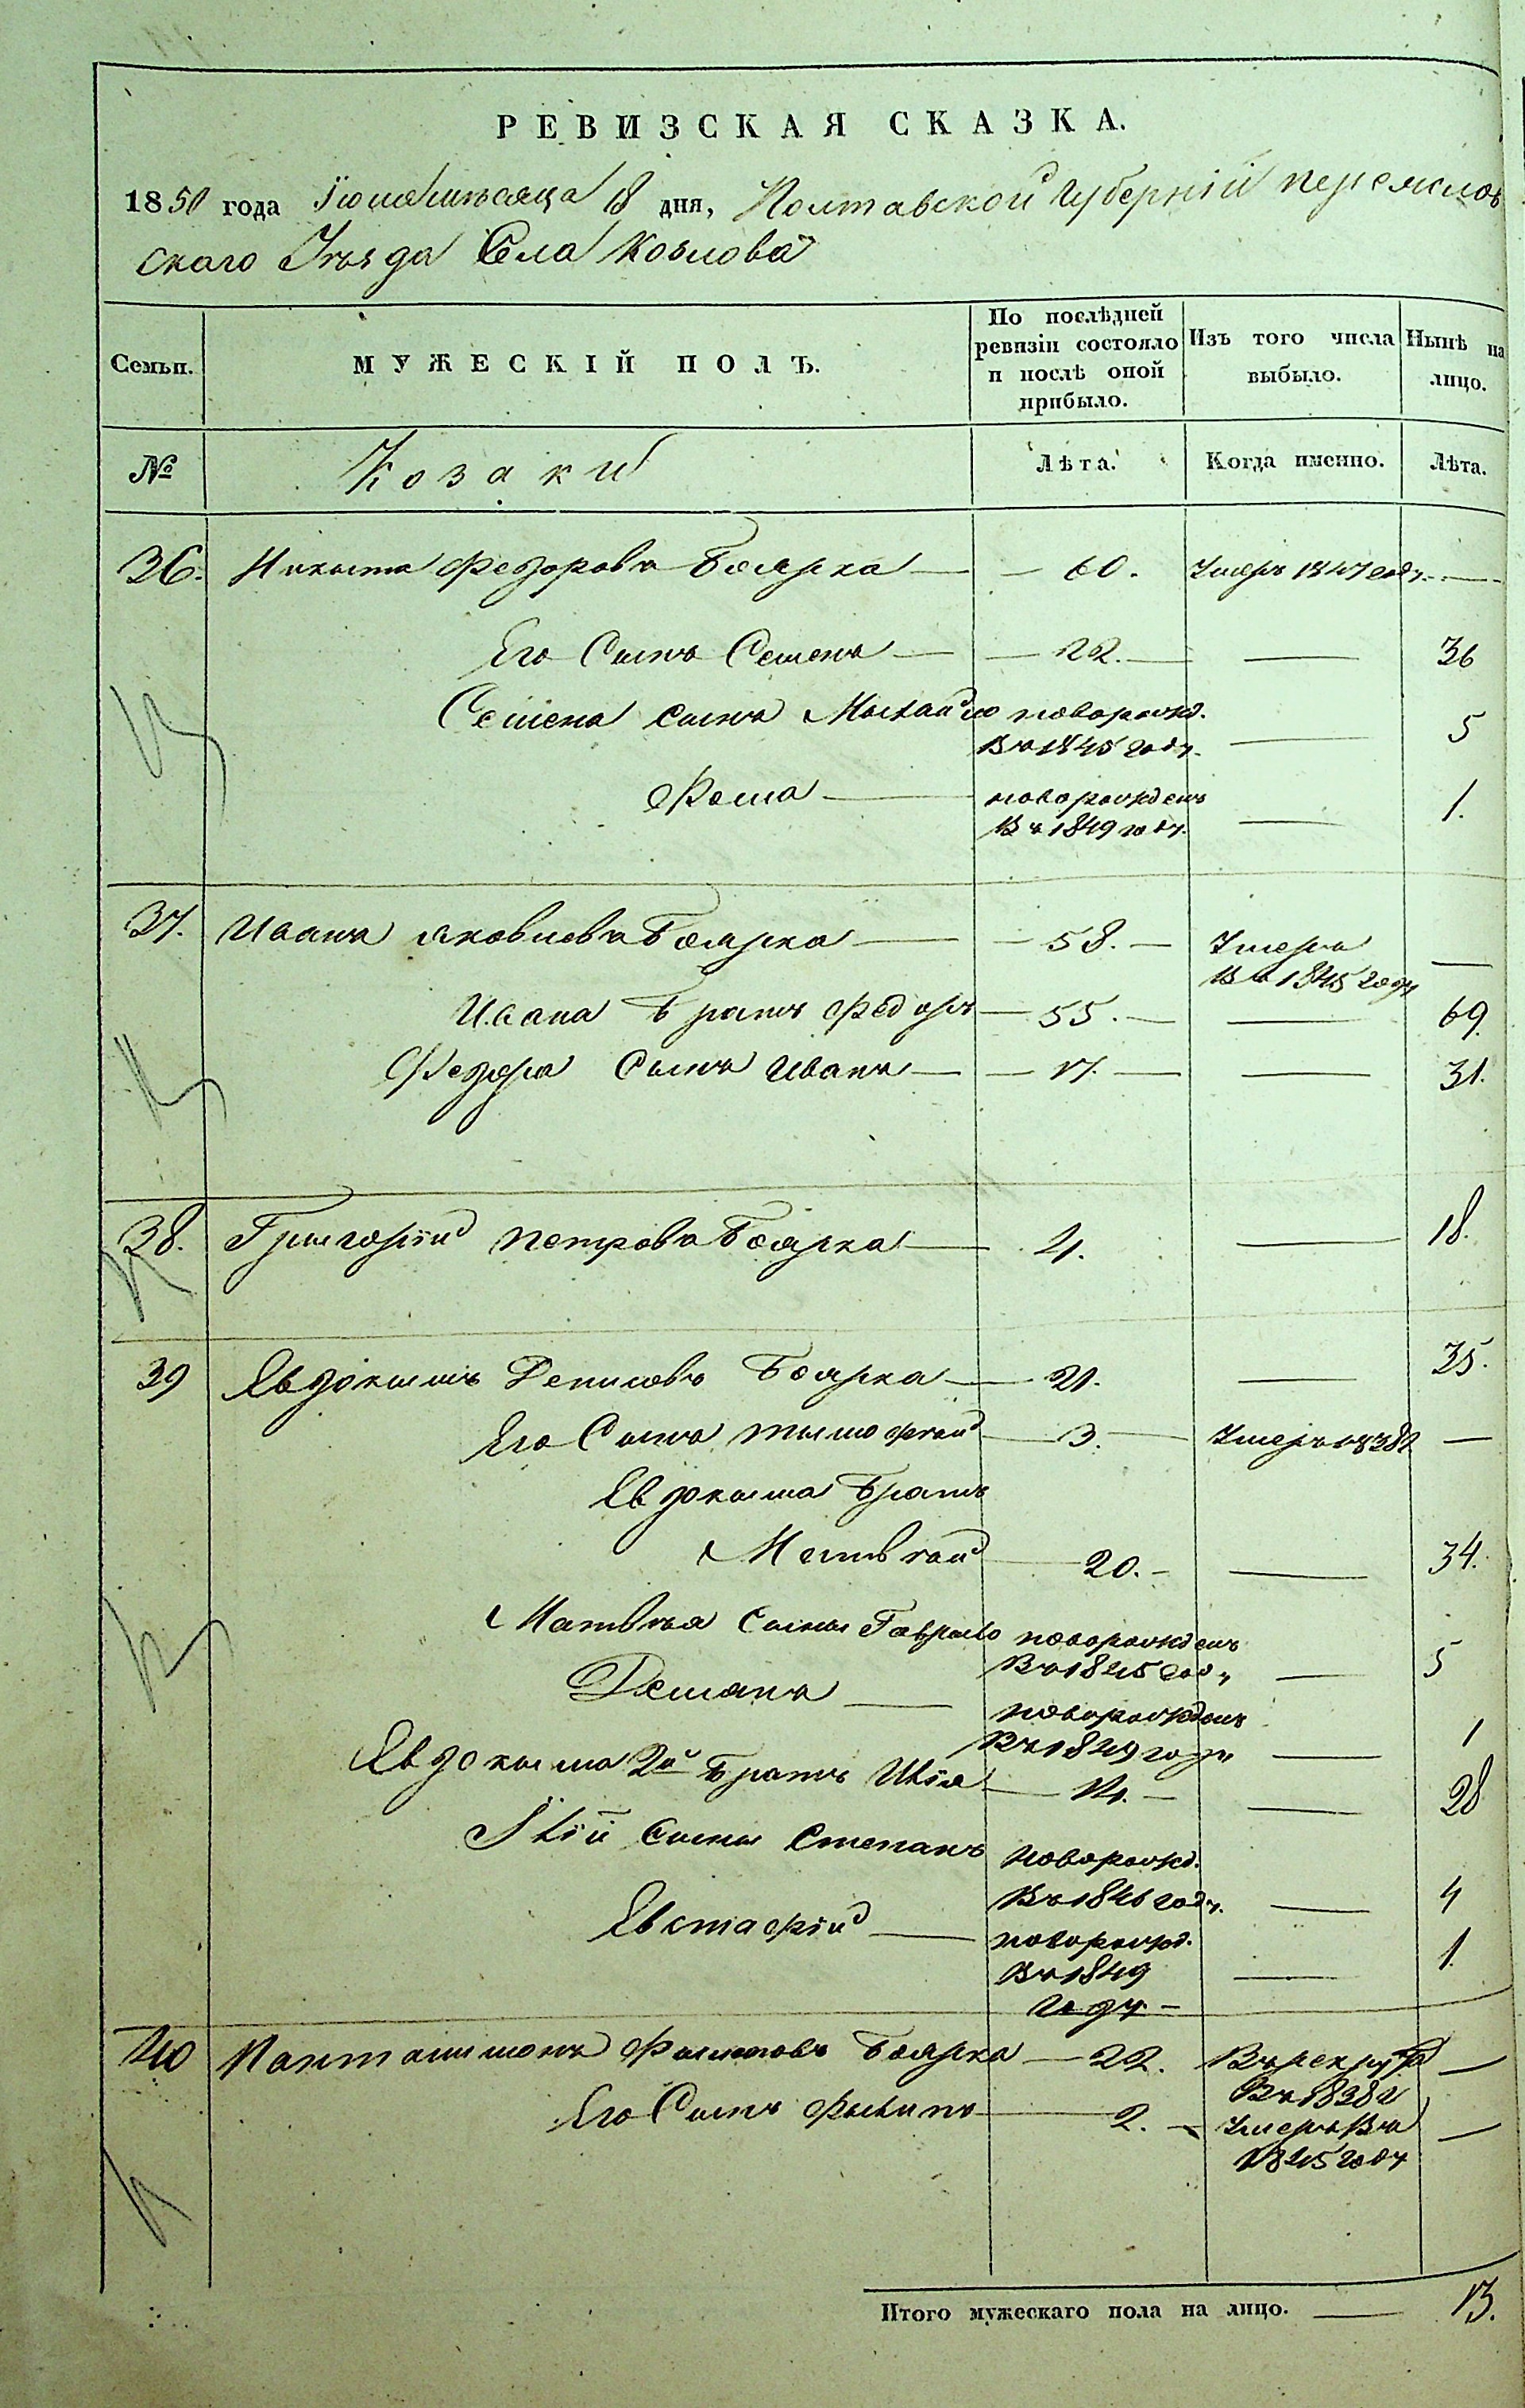 РЕВИЗСКАЯ СКАЗКА.
1850 года Іюня мѣсяца 18 дня, Полтавской Губерніи переяслов
скаго Уѣзда Села Козлова
Семьи. МУЖЕСКІЙ ПОЛЪ. По послѣдней ревизіи состояло и послѣ оной прибыло. Изъ того числа выбыло. Нынѣ на лицо.
№ Козаки Лѣта. Когда именно. Лѣта.
36. Никита Федоровъ Боярка — 60. Умеръ 1847 году —
Его Сынъ Семенъ — 22. — — 36
Семена сынъ Михайло новорожд. — 5
Въ 1845 году.
Фома — новорожденъ — 1.
Въ 1849 году.
37. Иванъ яковлевъ Боярка — 58. — Умеръ —
Въ 1845 году
Ивана Братъ Федоръ — 55. — — 69.
Федора Сынъ Иванъ — 17. — — 31.
38. Григорій петровъ Боярка — 4. — 18.
39 Евдокимъ Денисовъ Боярка — 21. — 35.
Его Сынъ тимофѣй — 3. — Умеръ 1838 г —
Евдокима Братъ
Матвѣй — 20. — — 34.
Матвѣя Сыны Гаврыло новорожденъ
Въ 1845 году — 5
Демянъ — новорожденъ
Въ 1849 году — 1
Евдокима 2й Братъ Илія — 14. — — 28
Иліи Сыны Степанъ новорожд.
Въ 1846 году. — 4
Евстафій — новорожд.
Въ 1849 — 1.
году —
40 Пантелимонъ Филиповъ Боярка — 22. Въ рекруты —
Въ 1838 г
Его Сынъ Филипъ — 2. — Умеръ Въ —
1845 году
Итого мужескаго пола на лицо. — 13.